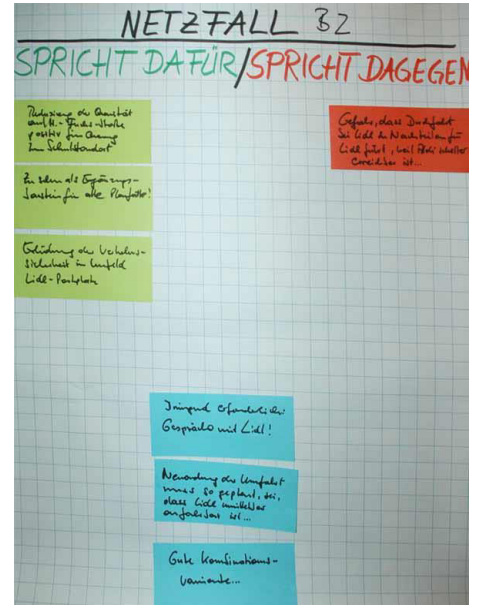 NETZFALL B2
SPRICHT DAFÜR/SPRICHT DAGEGEN
Reduzierung der Quantität
auf H.-Fuchs-Straße
positiv für Querung
zum Schulstandort
Zu sehen als Ergänzungs-
baustein für alle Planfälle!
Erhöhung der Verkehrs-
sicherheit im Umfeld
Lidl-Parkplatz
Gefahr, dass Durchfahrt
bei Lidl zu Nachteilen für
Lidl führt, weil Aldi schneller
erreichbar ist...
Dringend erforderlich:
Gespräche mit Lidl!
Neuordnung der Umfahrt
muss so geplant sein,
dass Lidl unmittelbar
anfahrbar ist...
Gute Kombinations-
variante...